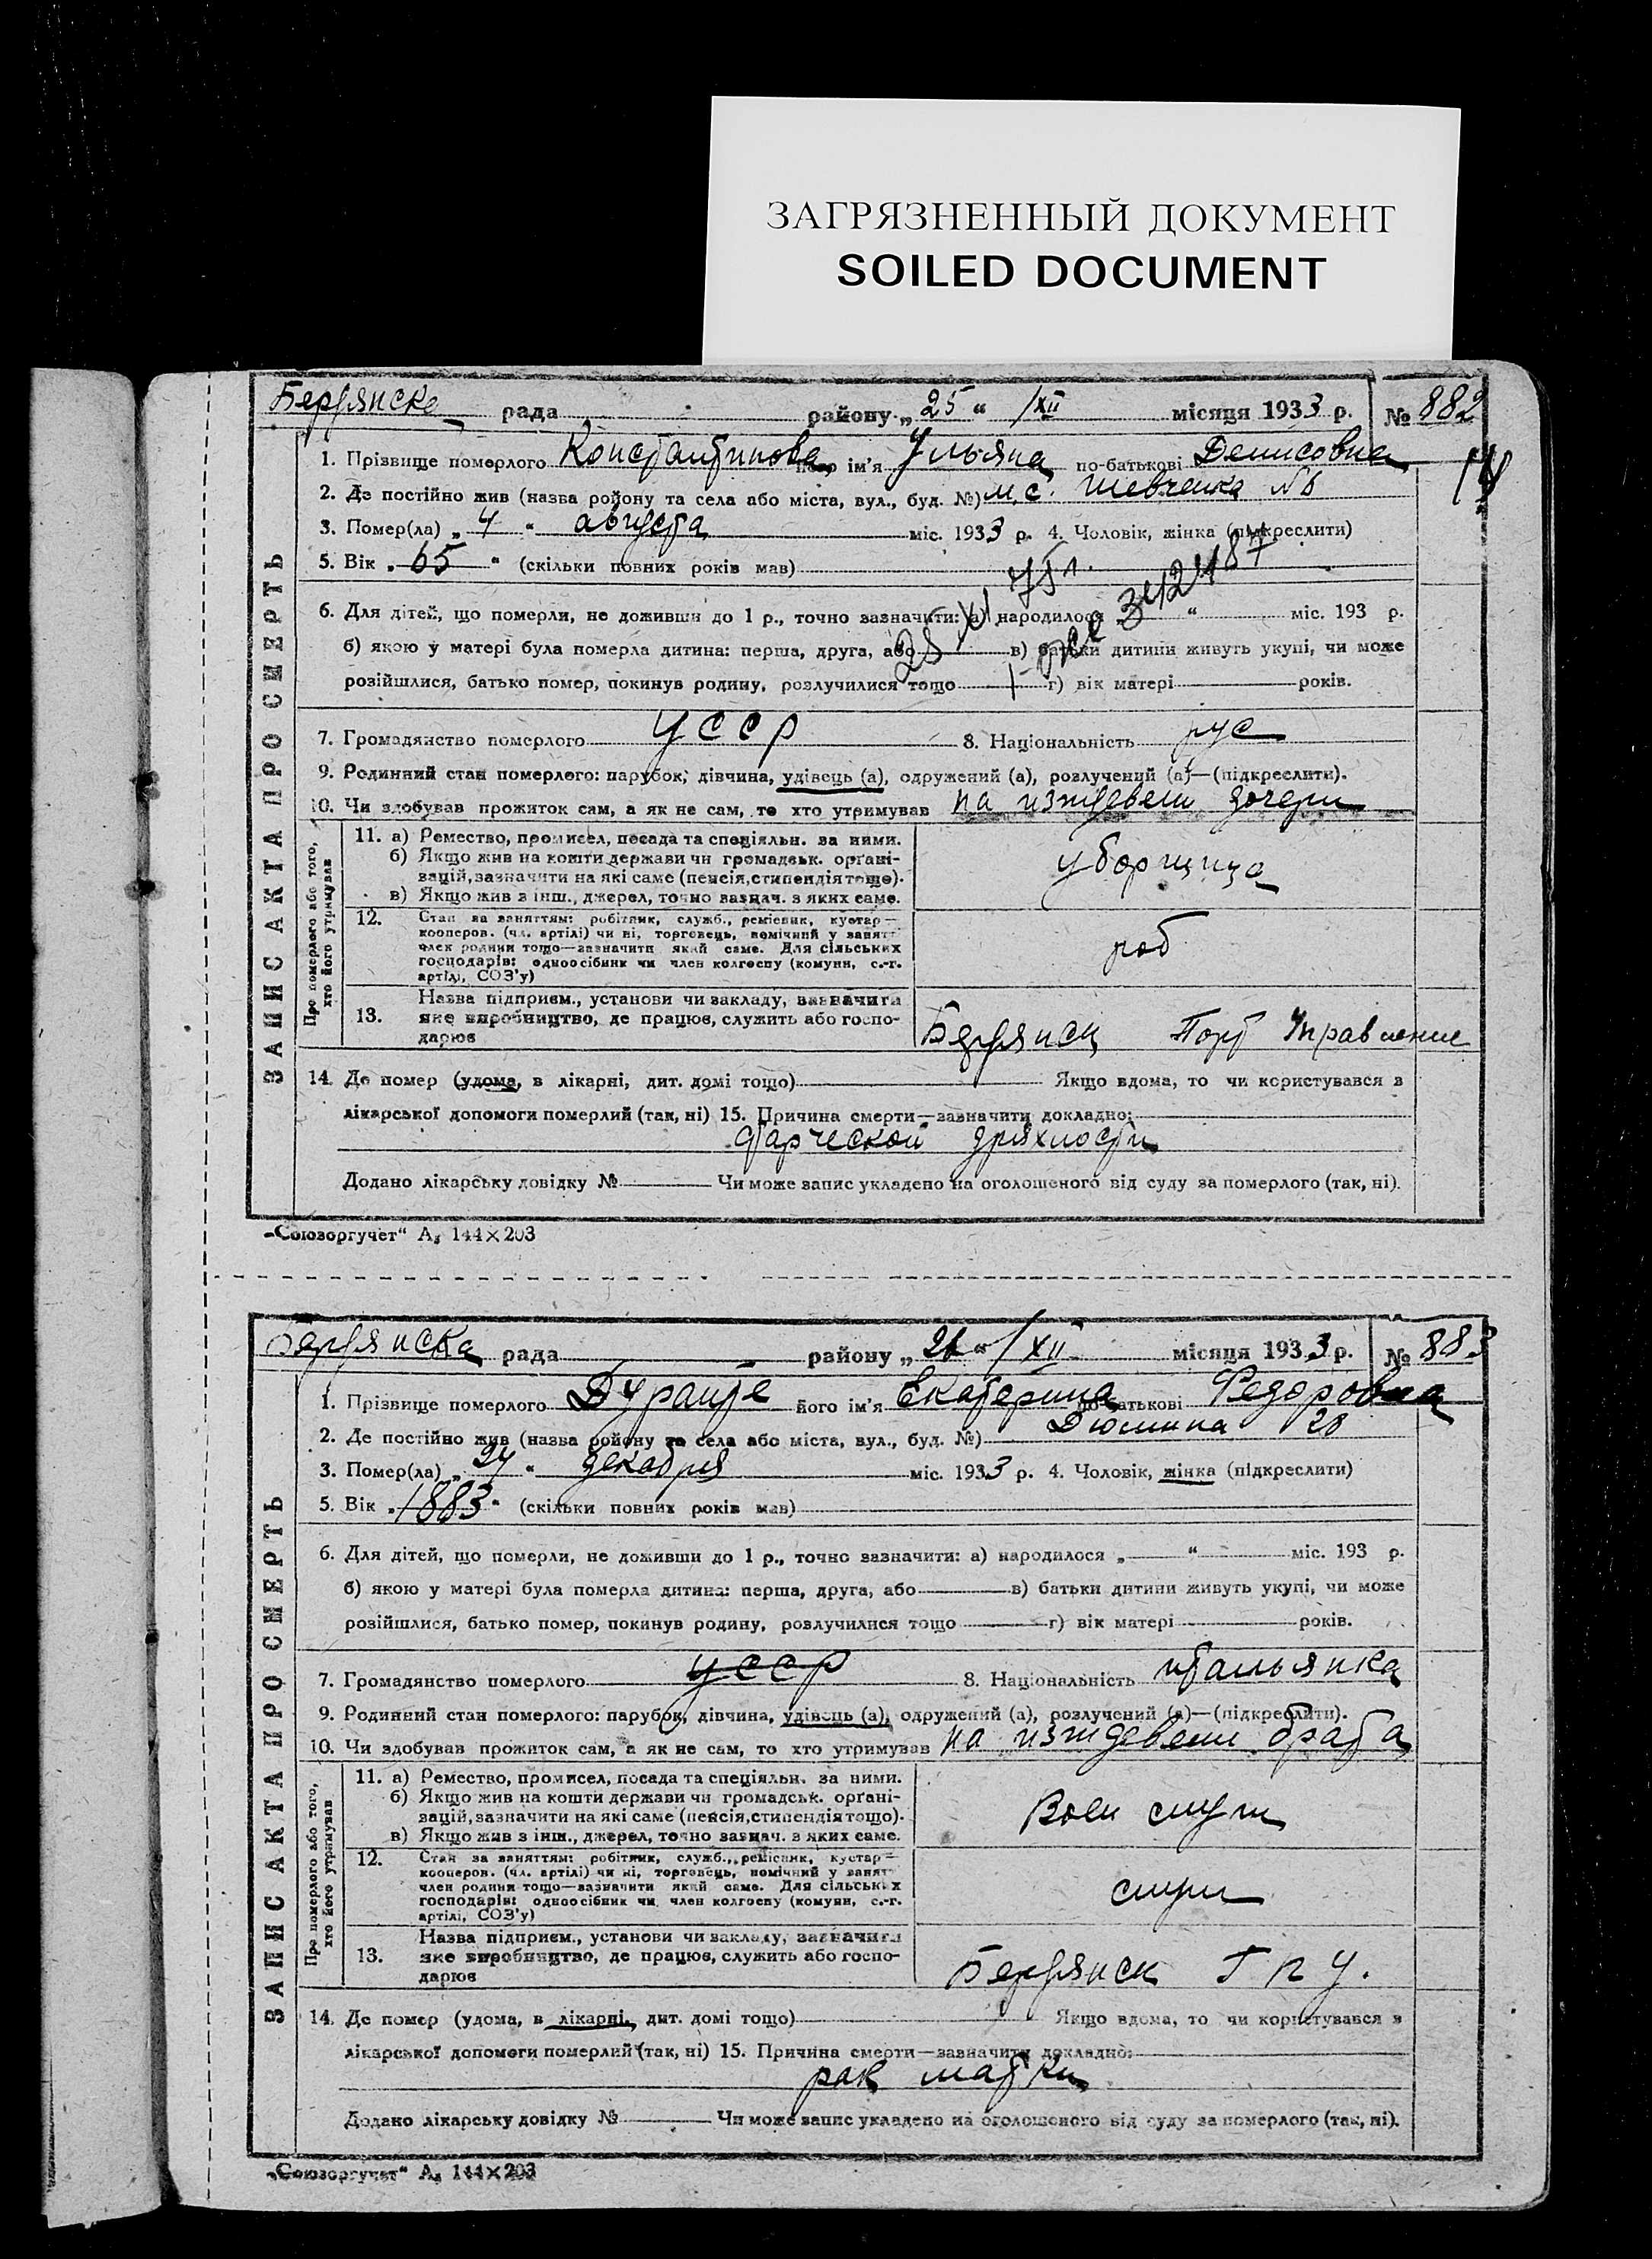 ЗАГРЯЗНЕННЫЙ ДОКУМЕНТ
SOILED DOCUMENT
Бердянска рада району „ 25 “ /XII місяця 1933 р. № 882
1. Прізвище померлого Константинова його ім'я Ульяна по-батькові Денисовна
2. Де постійно жив (назва району та села або міста, вул., буд. №) Шевченка №6
3. Помер(ла) „ 4 “ августа міс. 1933 р. 4. Чоловік, жінка (підкреслити)
5. Вік „ 65 “ (скільки повних років мав)
75 г.
25 XI
6. Для дітей, що померли, не доживши до 1 р., точно зазначити: а) народилося „ “ міс. 193 р.
б) якою у матері була померла дитина: перша, друга, або в) батьки дитини живуть укупі, чи може
розійшлися, батько помер, покинув родину, розлучилися тощо г) вік матері років.
7. Громадянство померлого УССР 8. Національність рус
9. Родинний стан померлого: парубок, дівчина, удівець (а), одружений (а), розлучений (а)—(підкреслити).
10. Чи здобував прожиток сам, а як не сам, то хто утримував на иждевени дочери
ЗАПИС АКТА ПРО СМЕРТЬ
Про померлого або того, хто його утримував
11. а) Ремество, промисел, посада та спеціяльн. за ними.
б) Якщо жив на кошти держави чи громадськ. органі-
зацій, зазначити на які саме (пенсія, стипендія тощо).
в) Якщо жив з інш., джерел, точно зазнач. з яких саме.
уборщица
12. Стан за заняттям: робітник, служб., ремісник, кустар—
кооперов. (чл. артілі) чи ні, торговець, помічний у занятт
член родини тощо—зазначити який саме. Для сільських
господарів: одноосібник чи член колгоспу (комуни, с.-г.
артілі, СОЗ'у)
раб
13. Назва підприєм., установи чи закладу, зазначити
яке виробництво, де працює, служить або госпо-
дарює
Бердянск Порт Управление
14. Де помер (удома, в лікарні, дит. домі тощо) Якщо вдома, то чи користувався з
лікарської допомоги померлий (так, ні) 15. Причина смерти—зазначити докладно:
старческой дряхлости
Додано лікарську довідку № Чи може запис укладено на оголошеного від суду за померлого (так, ні).
„Союзоргучет“ А₅ 144×203
Бердянска рада району „ 26 “ /XII місяця 1933 р. № 883
1. Прізвище померлого Дуранте його ім'я Екатерина по-батькові Федоровна
2. Де постійно жив (назва району та села або міста, вул., буд. №) Дюмина 28
3. Помер(ла) „ 24 “ декабря міс. 1933 р. 4. Чоловік, жінка (підкреслити)
5. Вік „ 1883 “ (скільки повних років мав)
6. Для дітей, що померли, не доживши до 1 р., точно зазначити: а) народилося „ “ міс. 193 р.
б) якою у матері була померла дитина: перша, друга, або в) батьки дитини живуть укупі, чи може
розійшлися, батько помер, покинув родину, розлучилися тощо г) вік матері років.
7. Громадянство померлого УССР 8. Національність итальянка
9. Родинний стан померлого: парубок, дівчина, удівець (а), одружений (а), розлучений (а)—(підкреслити).
10. Чи здобував прожиток сам, а як не сам, то хто утримував на иждевени брата
ЗАПИС АКТА ПРО СМЕРТЬ
Про померлого або того, хто його утримував
11. а) Ремество, промисел, посада та спеціяльн. за ними.
б) Якщо жив на кошти держави чи громадськ. органі-
зацій, зазначити на які саме (пенсія, стипендія тощо).
в) Якщо жив з інш., джерел, точно зазнач. з яких саме.
Воен служ
12. Стан за заняттям: робітник, служб., ремісник, кустар—
кооперов. (чл. артілі) чи ні, торговець, помічний у занятт
член родини тощо—зазначити який саме. Для сільських
господарів: одноосібник чи член колгоспу (комуни, с.-г.
артілі, СОЗ'у)
служ
13. Назва підприєм., установи чи закладу, зазначити
яке виробництво, де працює, служить або госпо-
дарює
Бердянск Г П У.
14. Де помер (удома, в лікарні, дит. домі тощо) Якщо вдома, то чи користувався з
лікарської допомоги померлий (так, ні) 15. Причина смерти—зазначити докладно:
рак матки
Додано лікарську довідку № Чи може запис укладено на оголошеного від суду за померлого (так, ні).
„Союзоргучет“ А₅ 144×203